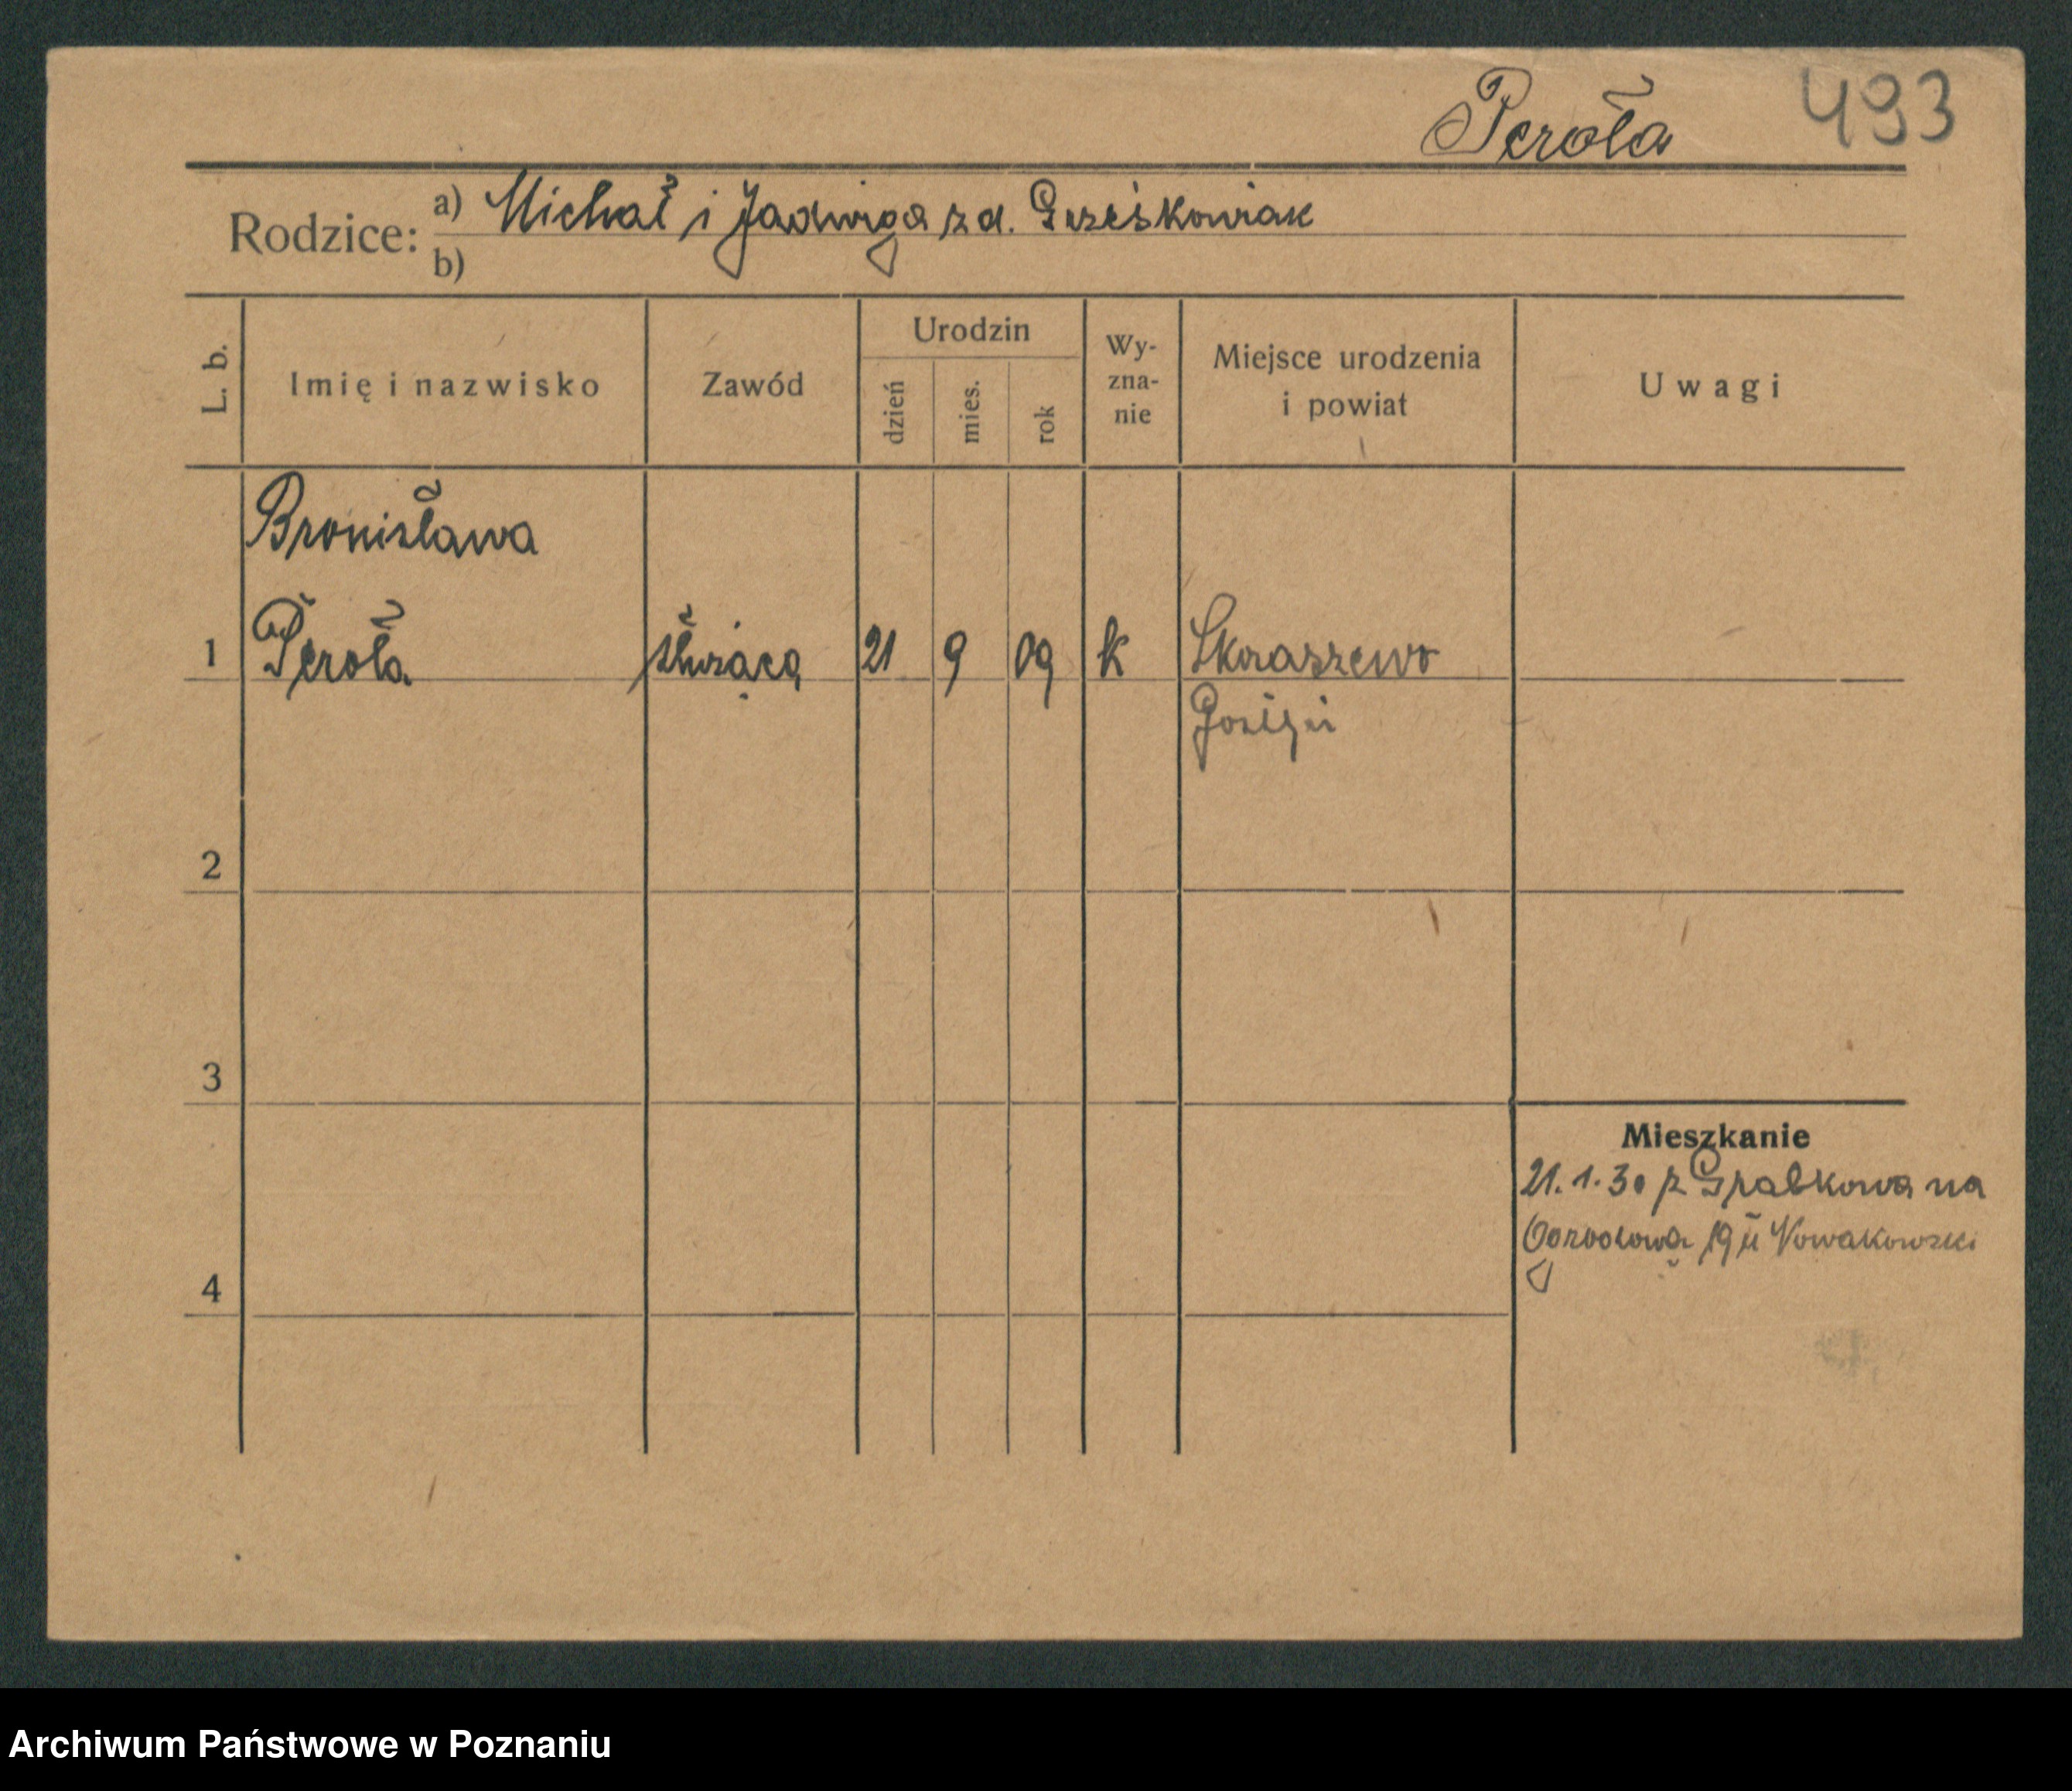 Peroła 493
Rodzice: a) Michał i Jadwiga z d. Grześkowiak
b)
L. b. Imię i nazwisko Zawód Urodzin dzień mies. rok Wy-zna-nie Miejsce urodzenia i powiat Uwagi
Bronisława
1 Peroła służąca 21 9 09 k Skoraszewo
Gostyń
2
3
Mieszkanie
21.1.30 z Grabkowa na
Ogrodowa 19 u Nowakowski
4
Archiwum Państwowe w Poznaniu